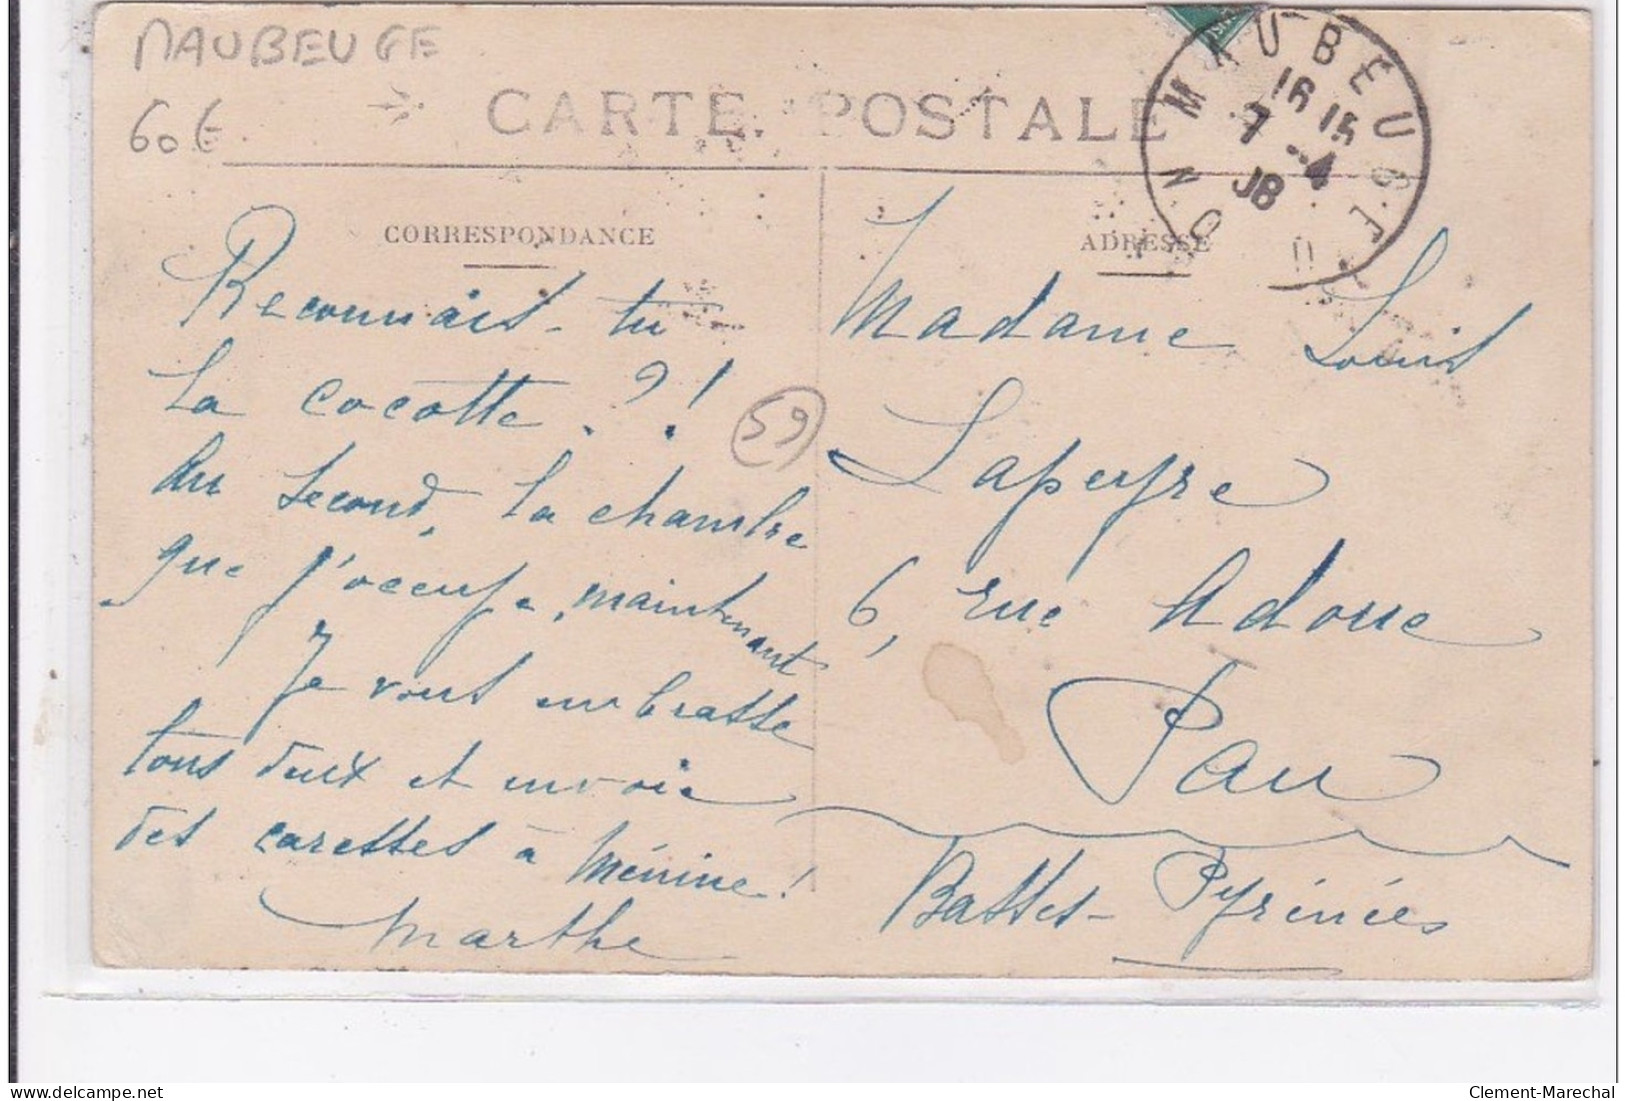 MAUBEUGE
60 €
CARTE POSTALE
MAUBEUGE NORD
16 15
7 - 4
08
CORRESPONDANCE
Reconnais-tu
la cocotte ? !
Au second, la chambre
que j'occupe maintenant
Je vous embrasse
tous deux et envoie
des caresses à Ménine !
Marthe
59
ADRESSE
Madame Louis
Lapeyre
6, rue Adoue
Pau
Basses-Pyrénées
Clement-Marechal